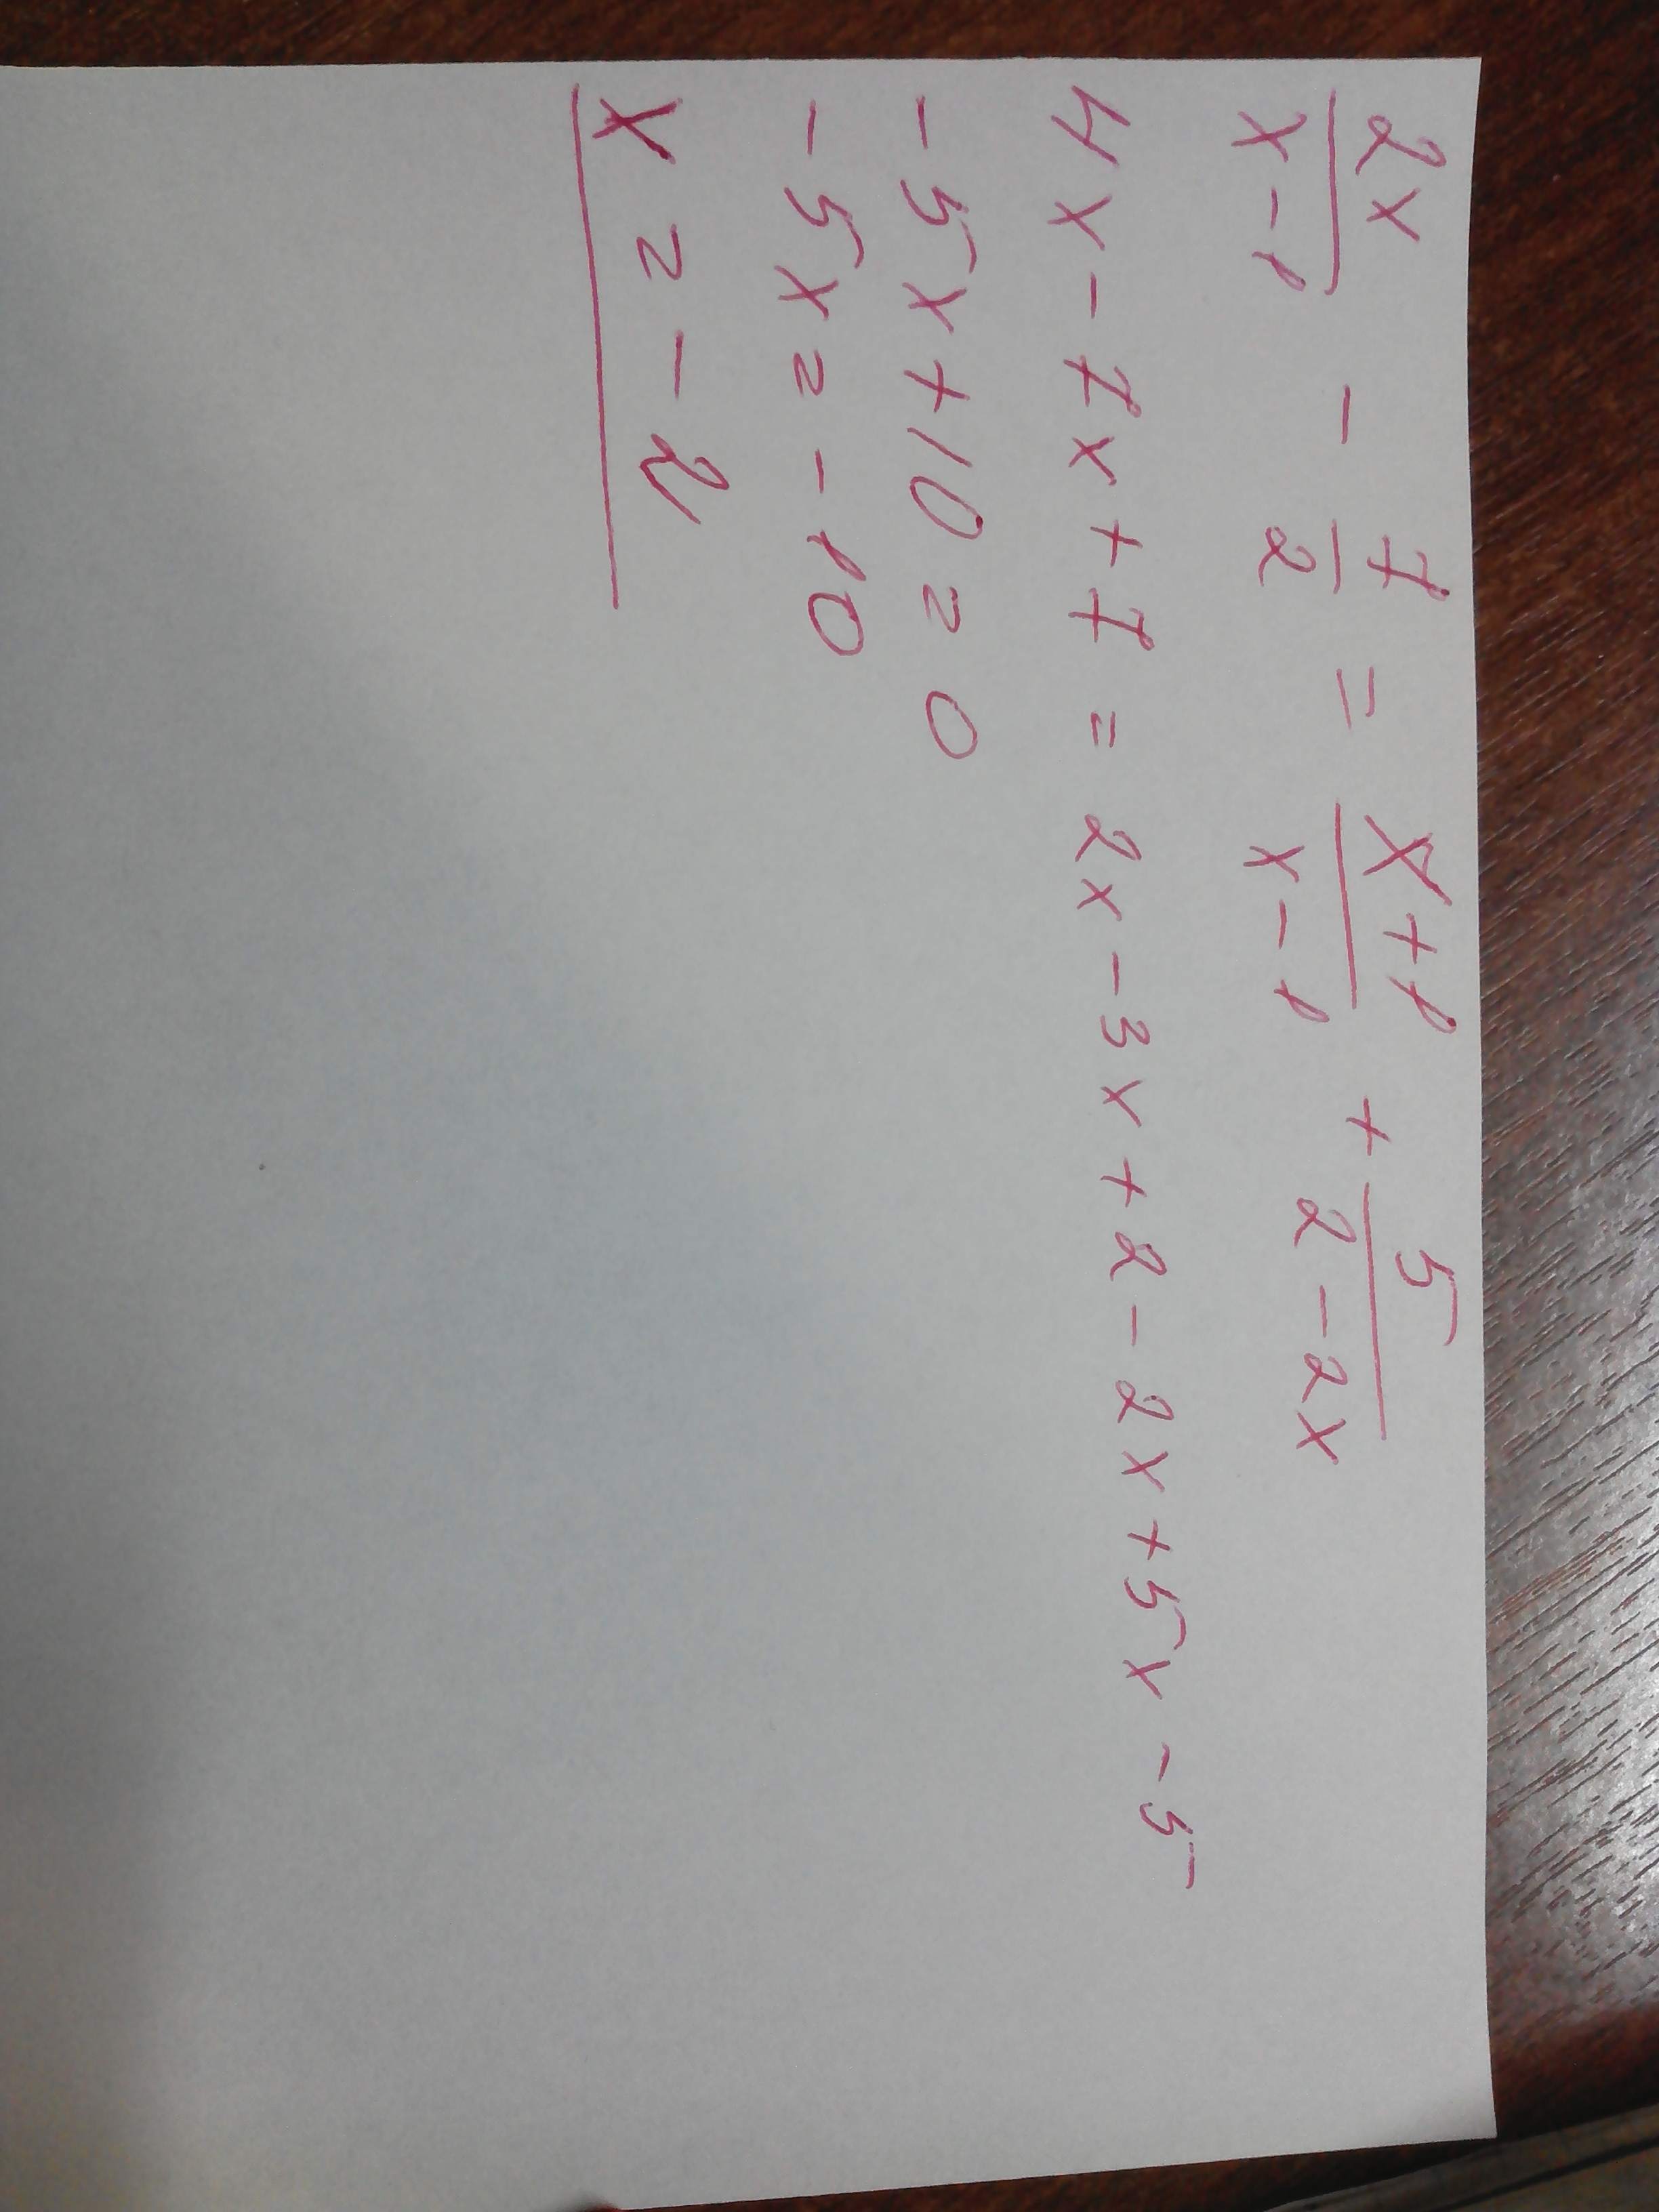 2x/(x-1) - 7/2 = (x+1)/(x-1) + 5/(2-2x)
4x - 7x + 7 = 2x - 3x + 2 - 2x + 5x - 5
-5x + 10 = 0
-5x = -10
x = -2